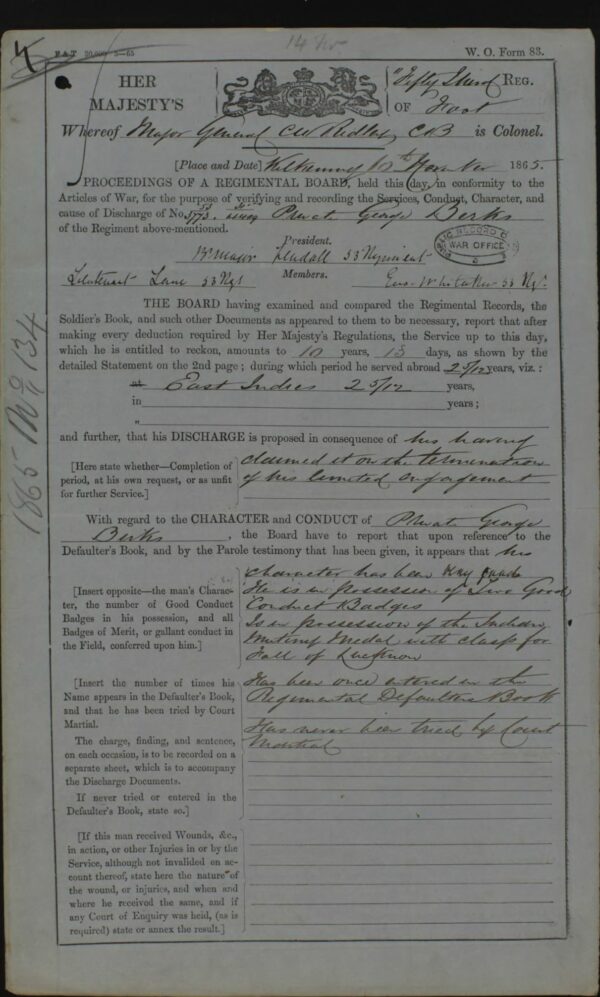 W. O. Form 83.
HER
MAJESTY'S
Fifty Third REG.
OF Foot
Whereof Major General CW Ridley CB is Colonel.
[Place and Date] Kilkenny 1865.
PROCEEDINGS OF A REGIMENTAL BOARD, held this day, in conformity to the
Articles of War, for the purpose of verifying and recording the Services, Conduct, Character, and
cause of Discharge of No. Private George Berks
of the Regiment above-mentioned.
RECORD
WAR OFFICE
President.
Major 53 Regiment
Members.
Lieutenant Lane 53 Regt
Ens. Whitaker 53 Rgt.
THE BOARD having examined and compared the Regimental Records, the
Soldier's Book, and such other Documents as appeared to them to be necessary, report that after
making every deduction required by Her Majesty's Regulations, the Service up to this day,
which he is entitled to reckon, amounts to 10 years, days, as shown by the
detailed Statement on the 2nd page; during which period he served abroad 2 5/12 years, viz.:
at East Indies 2 5/12 years,
in years;
"
and further, that his DISCHARGE is proposed in consequence of his having
[Here state whether—Completion of
period, at his own request, or as unfit
for further Service.]
claimed it on the termination
of his limited engagement
With regard to the CHARACTER and CONDUCT of Private George
Berks, the Board have to report that upon reference to the
Defaulter's Book, and by the Parole testimony that has been given, it appears that his
[Insert opposite—the man's Charac-
ter, the number of Good Conduct
Badges in his possession, and all
Badges of Merit, or gallant conduct in
the Field, conferred upon him.]
character has been Very good
He is in possession of Two Good
Conduct Badges
Is in possession of the Indian
Mutiny Medal with clasp for
Fall of Lucknow
[Insert the number of times his
Name appears in the Defaulter's Book,
and that he has been tried by Court
Martial.
The charge, finding, and sentence,
on each occasion, is to be recorded on a
separate sheet, which is to accompany
the Discharge Documents.
If never tried or entered in the
Defaulter's Book, state so.]
Has been once entered in the
Regimental Defaulters Book
Has never been tried by Court
Martial
[If this man received Wounds, &c.,
in action, or other Injuries in or by the
Service, although not invalided on ac-
count thereof, state here the nature of
the wound, or injuries, and when and
where he received the same, and if
any Court of Enquiry was held, (as is
required) state or annex the result.]
1865 No 134